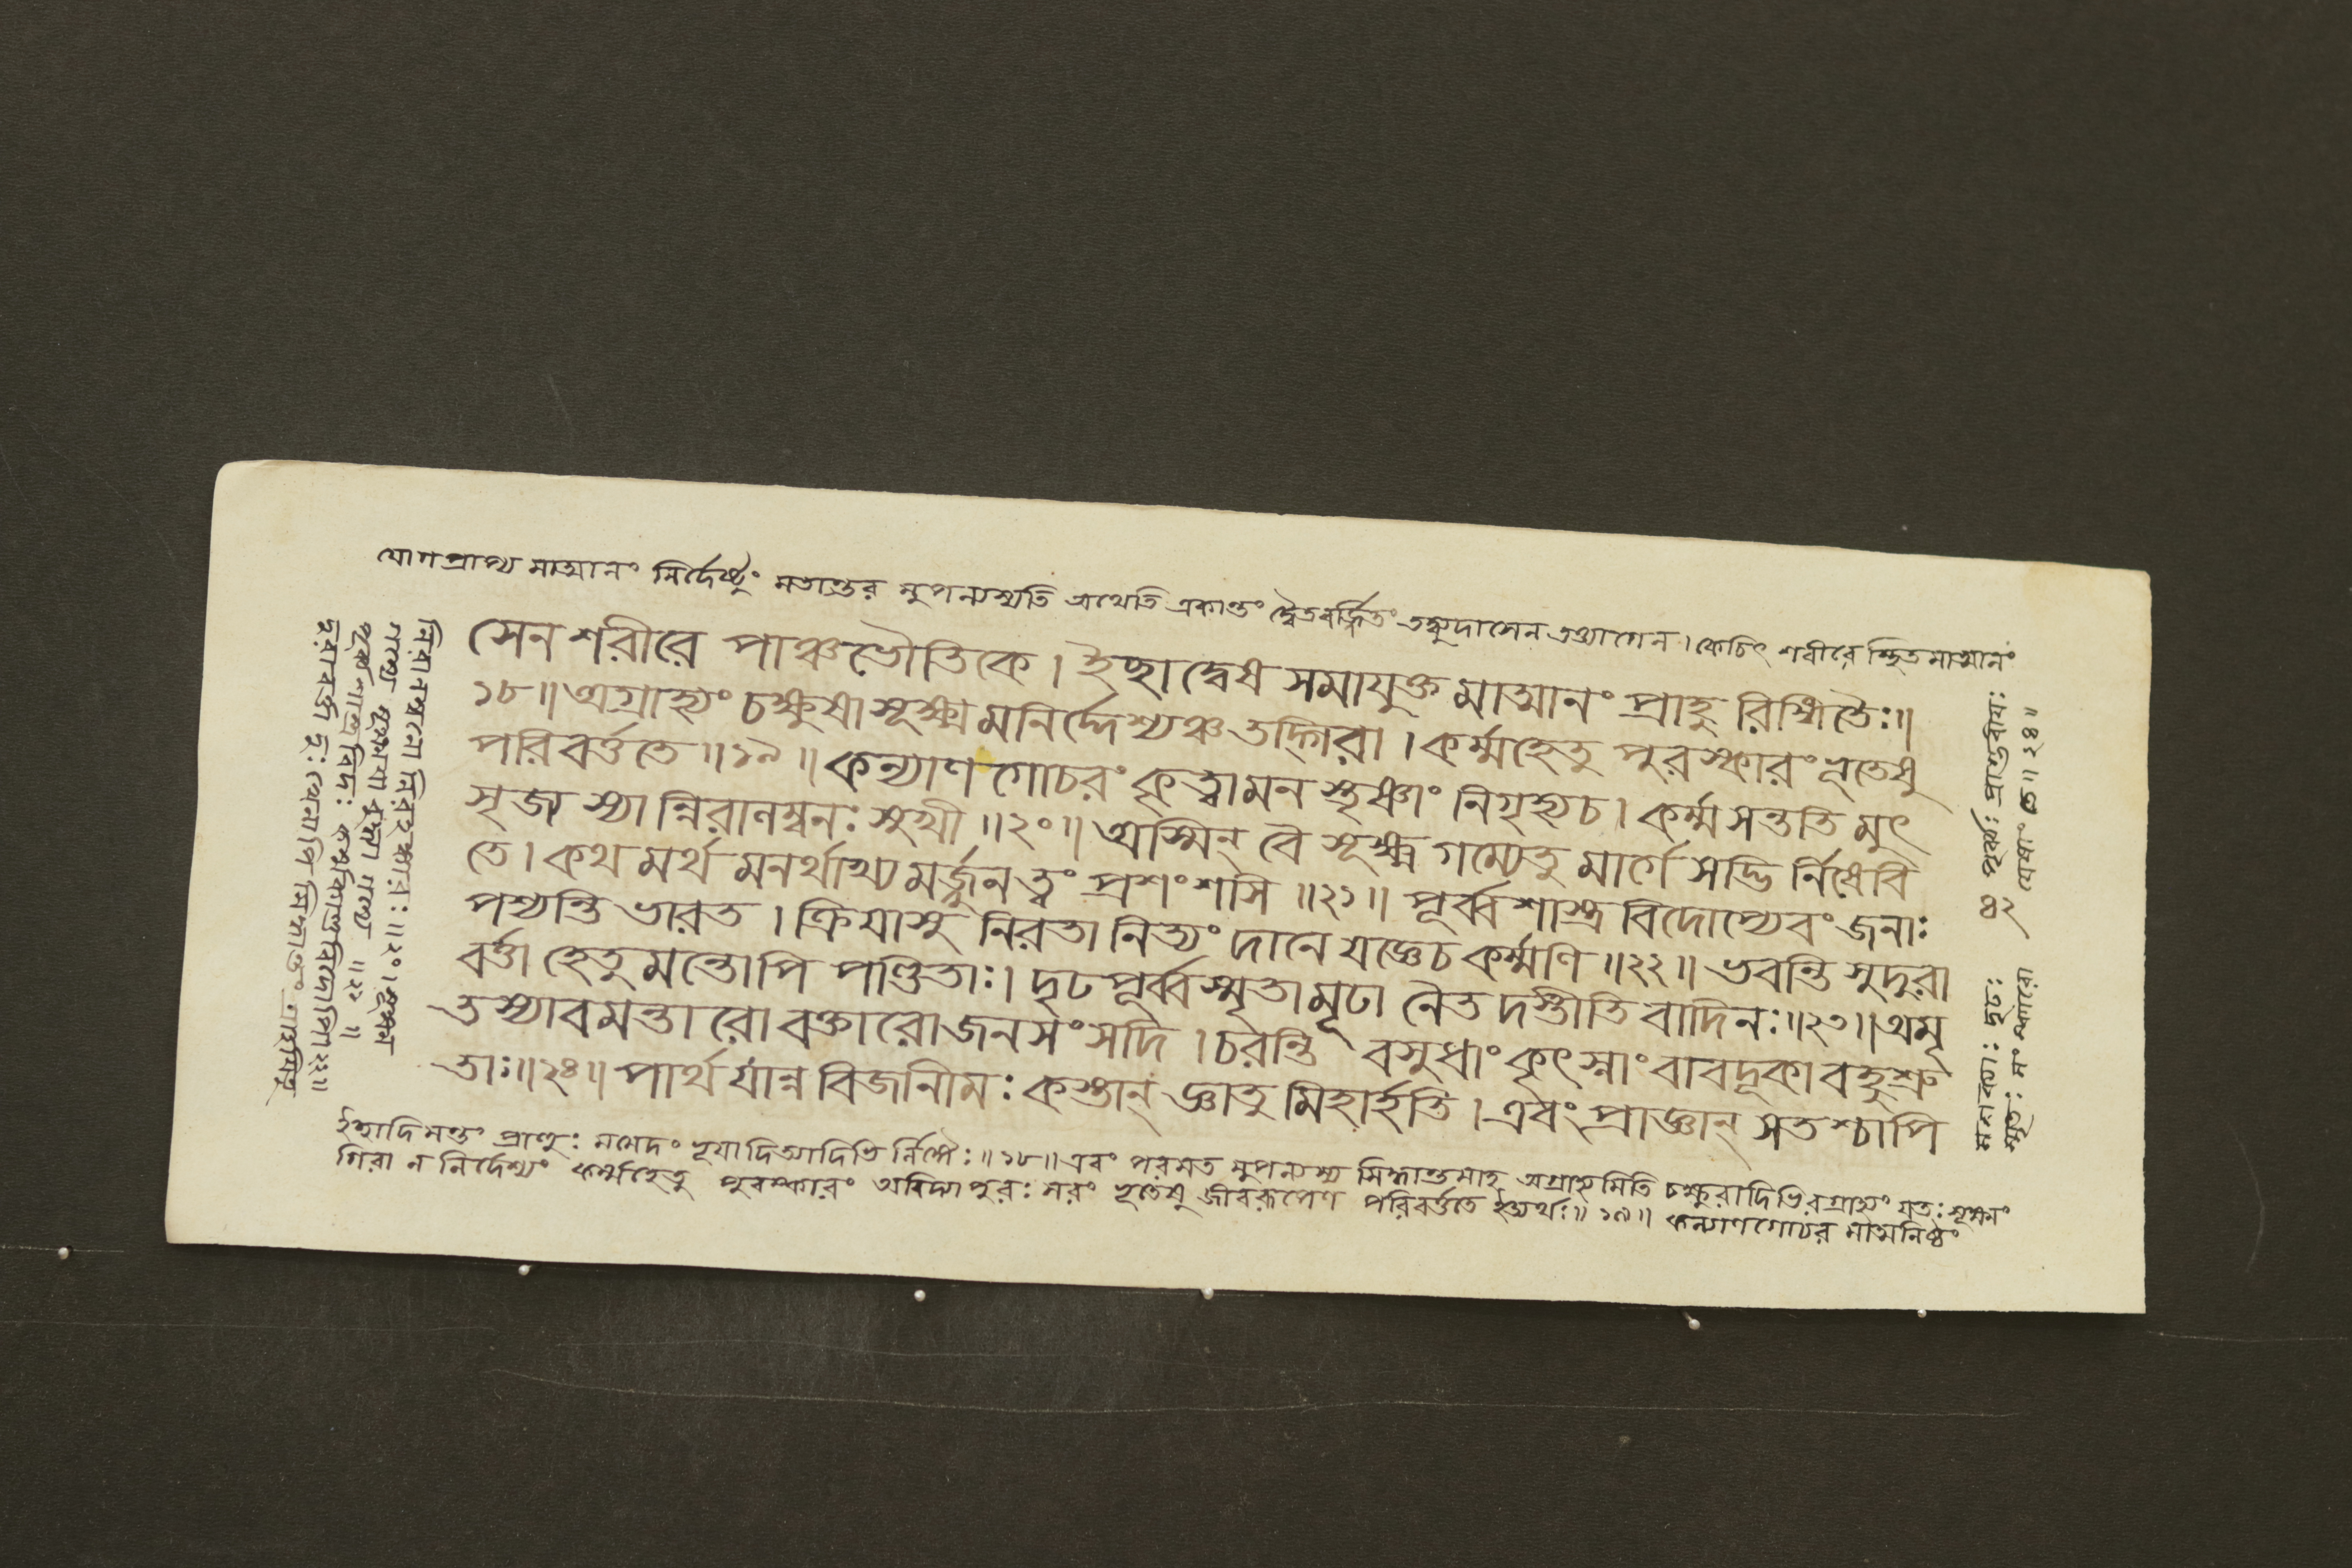 যোগপ্রাপ্য মাত্মানং নির্দেষ্টুং মতান্তর মুপন্যস্যতি অথেতি একান্তং দ্বৈতবর্জ্জিতং কেচিৎ শরীরে স্থিতমাত্মানং
সেন শরীরে পাঞ্চভৌতিকে । ইচ্ছা দ্বেষ সমাযুক্ত মাত্মানং প্রাহু রিঙ্গিতৈঃ॥
১৮॥ অগ্রাহ্যং চক্ষুষা সূক্ষ্ম মনির্দ্দেশ্যঞ্চ তদ্গিরা । কর্ম্মহেতু পুরস্কারং ভূতেষু
পরিবর্ত্ততে ॥১৯॥ কল্যাণ গোচরং কৃত্বা মন স্তৃষ্ণাং নিগৃহ্য চ । কর্ম্ম সন্ততি মুৎ
সৃজ্য স্যা ন্নিরালম্বনঃ সুখী ॥২০॥ অস্মিন্ বৈ সূক্ষ্ম গম্যেতু মার্গে সদ্ভি র্নিষেবি
তে । কথ মর্থ মনর্থাখ্য মর্জ্জুন ত্বং প্রশংশসি ॥২১॥ পূর্ব্ব শাস্ত্র বিদোপ্যেবং জনাঃ
পশ্যন্তি ভারত । ক্রিয়াসু নিরতা নিত্যং দানে যজ্ঞেচ কর্ম্মণি ॥২২॥ ভবন্তি সুদুরা
বর্ত্তা হেতুমন্তোপি পণ্ডিতাঃ । দৃঢ পূর্ব্ব স্মৃতা মূঢা নৈত দস্তীতি বাদিনঃ ॥২৩॥ অমৃ
তস্যাবমন্তারো বক্তারো জন সংসদি । চরন্তি বসুধাং কৃৎস্নাং বাবদূকা বহুশ্রু
তাঃ ॥২৪॥ পার্থ যান্ন বিজানীমঃ কস্তান্ জ্ঞাতু মিহার্হতি । এবং প্রাজ্ঞান্ সতশ্চাপি
ইচ্ছাদি মন্তং প্রাহুঃ র্লিঙ্গৈঃ॥১৮॥ এবং পরমত মুপন্যস্য সিদ্ধান্তমাহ অগ্রাহ্য মিতি চক্ষুরাদিভিরগ্রাহ্যং যতঃ সূক্ষ্মং
গিরা ন নির্দেশ্যং কর্ম্মহেতু পুরস্কারং অবিদ্যা পুরঃ সরং ভূতেষু জীবরূপেণ পরিবর্ত্ততে ইত্যর্থঃ॥১৯॥ কল্যাণগোচর মাত্মনিষ্ঠং
নিরালম্বনো নিরহঙ্কারঃ ॥২০॥
গম্যে সূক্ষ্মায়া গম্যে ॥২১॥
পূর্ব্ব শাস্ত্রবিদঃ কর্ম্মকাণ্ডবিদোপি॥২২॥
দুরাবর্ত্তা দুঃখেনাপি সিদ্ধান্তং
৪২ পূর্ব্বঃ প্রাগ্ভবীয়ঃ
যেষাং তে॥২৪॥
দৃঢঃ
স্মৃতঃ সংস্কারো